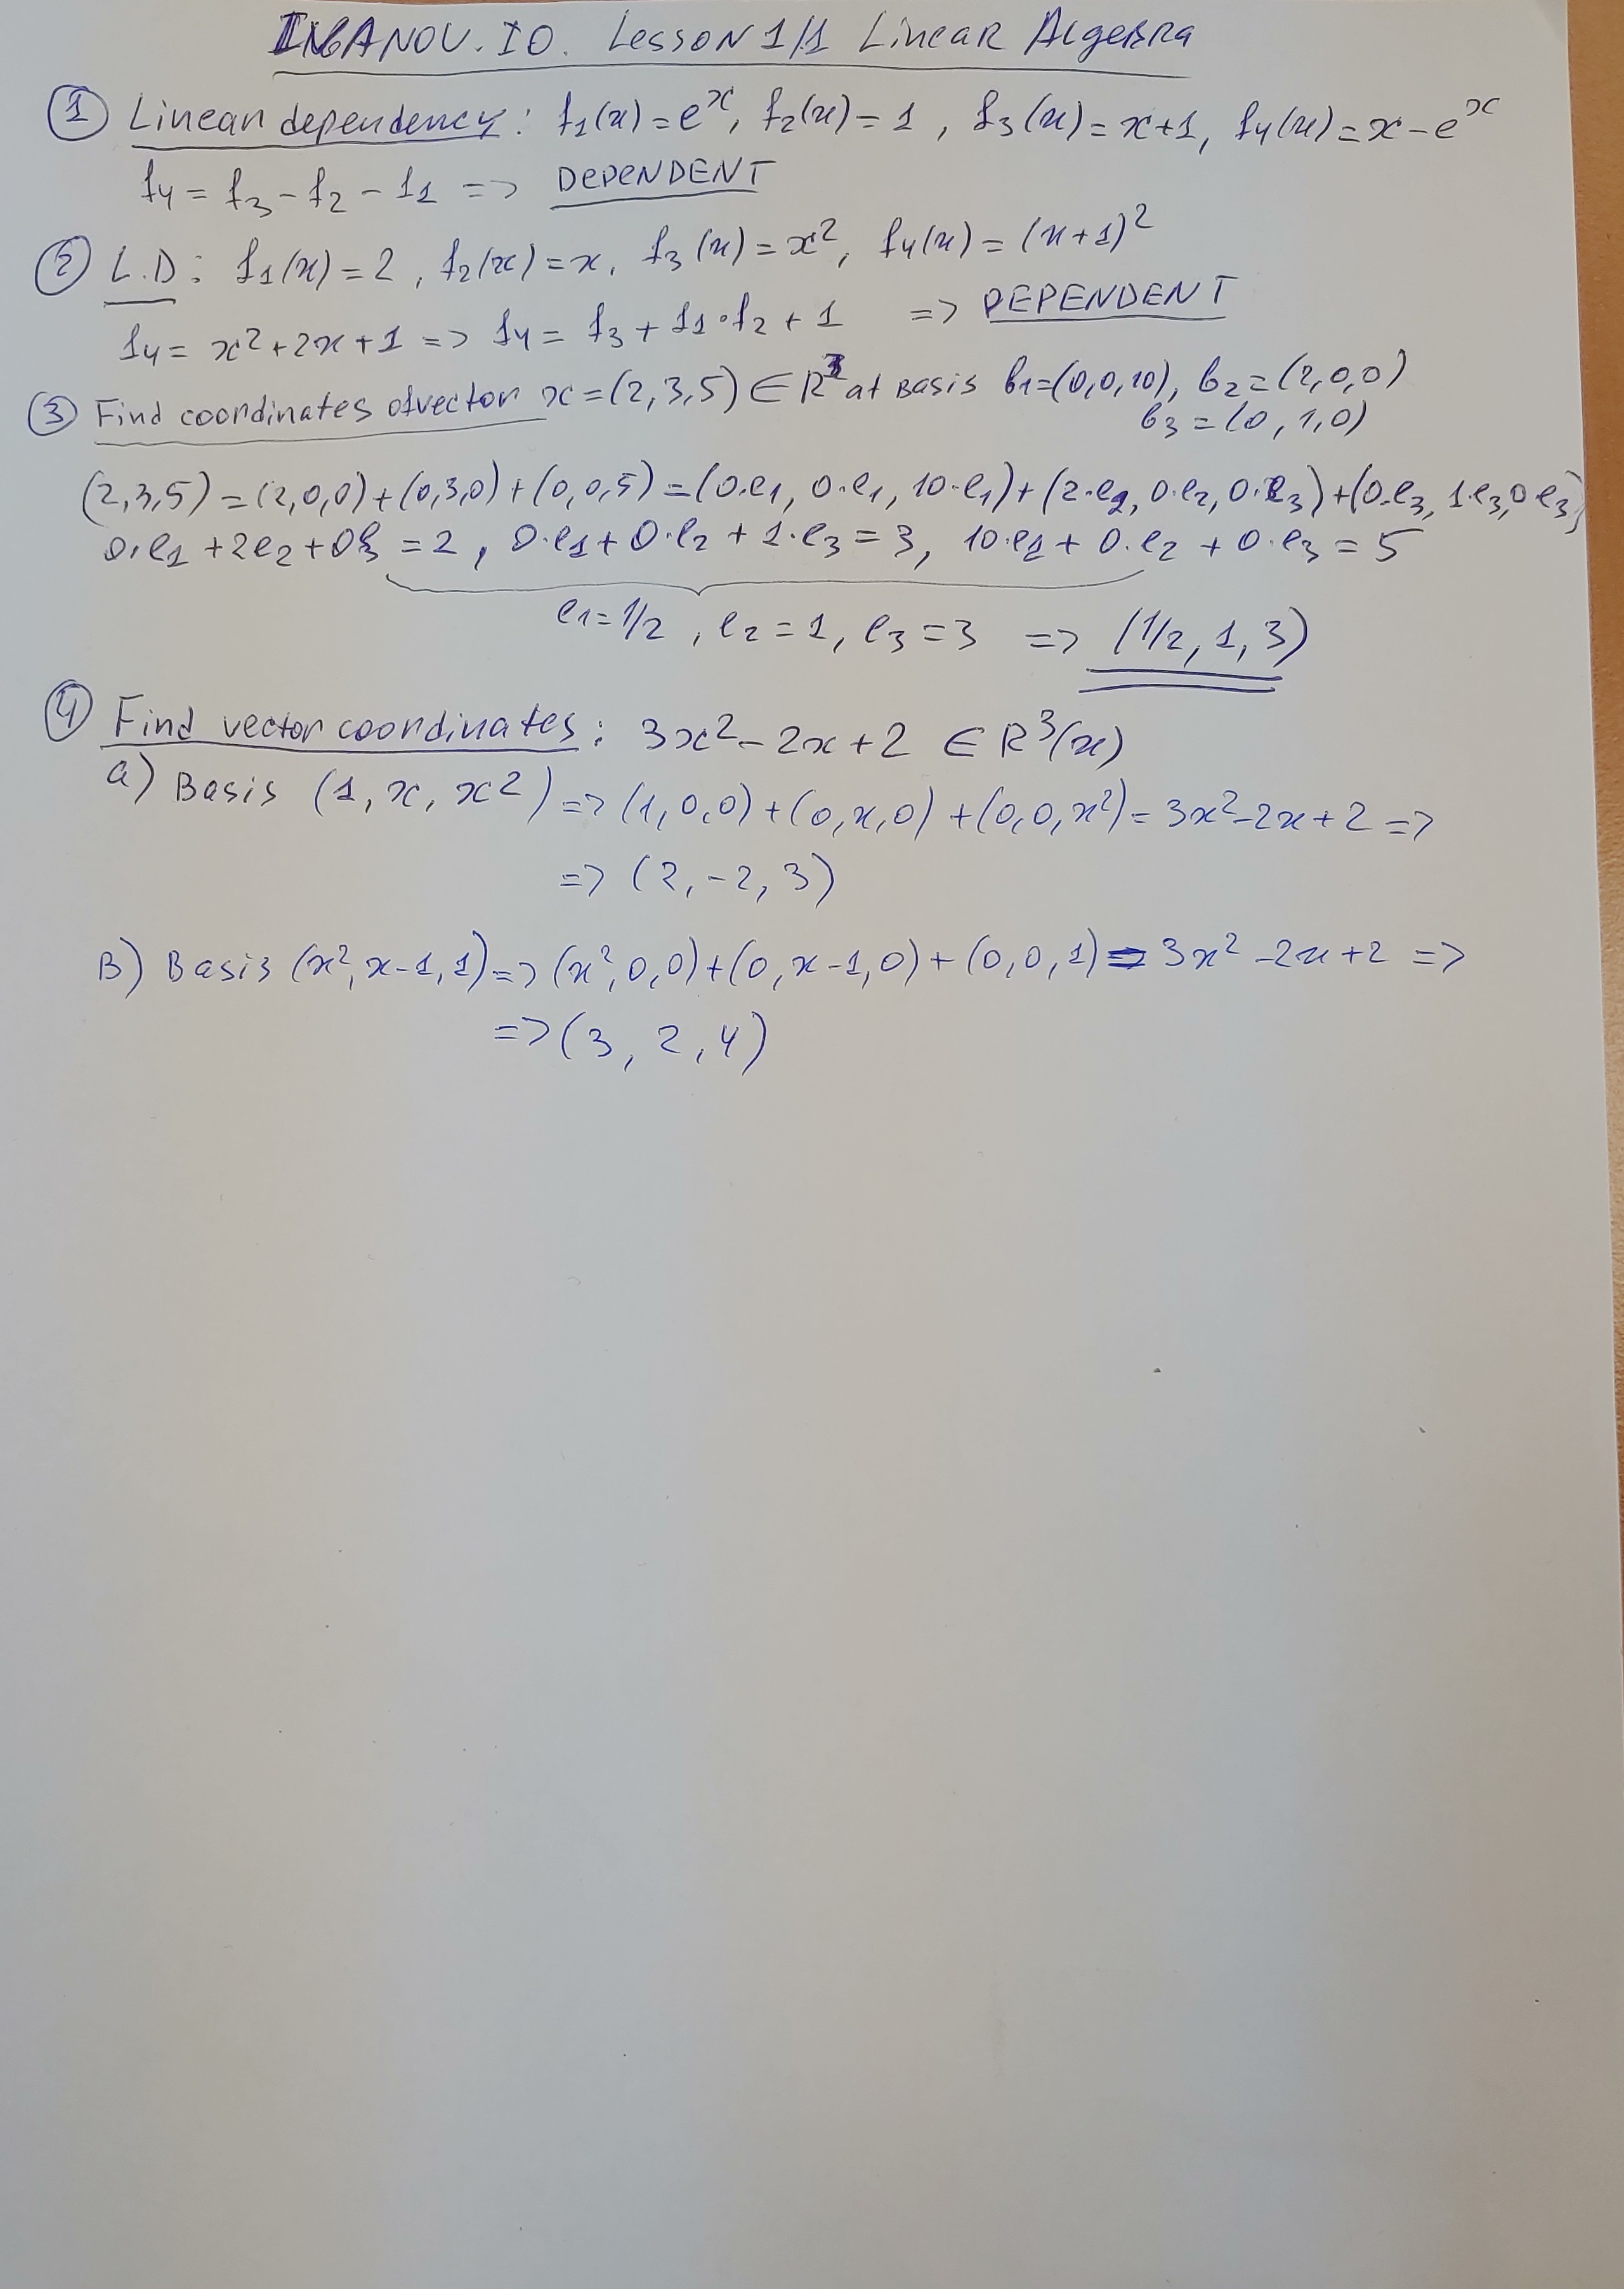 IVANOV. IO. Lesson 1/1 Linear Algebra
① Linear dependency: f₁(x) = eˣ, f₂(x) = 1, f₃(x) = x+1, f₄(x) = x - eˣ
f₄ = f₃ - f₂ - f₁ => DEPENDENT
② L.D: f₁(x) = 2, f₂(x) = x, f₃(x) = x², f₄(x) = (x+1)²
f₄ = x² + 2x + 1 => f₄ = f₃ + f₁·f₂ + 1 => DEPENDENT
③ Find coordinates of vector x = (2,3,5) ∈ R³ at Basis b₁=(0,0,10), b₂=(2,0,0)
b₃ = (0,1,0)
(2,3,5) = (2,0,0)+(0,3,0)+(0,0,5) = (0·e₁, 0·e₁, 10·e₁)+(2·e₂, 0·e₂, 0·e₃)+(0·e₃, 1·e₃, 0·e₃)
0·e₁ + 2e₂ + 0e₃ = 2, 0·e₁ + 0·e₂ + 1·e₃ = 3, 10·e₁ + 0·e₂ + 0·e₃ = 5
e₁=1/2, e₂=1, e₃=3 => (1/2, 1, 3)
④ Find vector coordinates: 3x² - 2x + 2 ∈ R³(x)
a) Basis (1, x, x²) => (1,0,0)+(0,x,0)+(0,0,x²) = 3x²-2x+2 =>
=> (2, -2, 3)
B) Basis (x², x-1, 1) => (x²,0,0)+(0,x-1,0)+(0,0,1) = 3x²-2x+2 =>
=> (3, 2, 4)